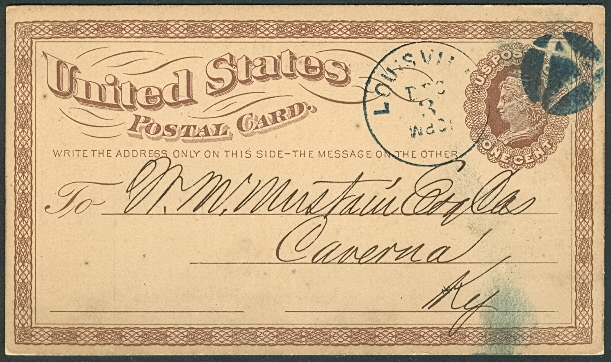 United States
POSTAL CARD.
WRITE THE ADDRESS ONLY ON THIS SIDE-THE MESSAGE ON THE OTHER
LOUISVILLE
DEC
3
U.S. POSTAGE
ONE CENT
To W. M. Mustain Esq
Caverna
Ky